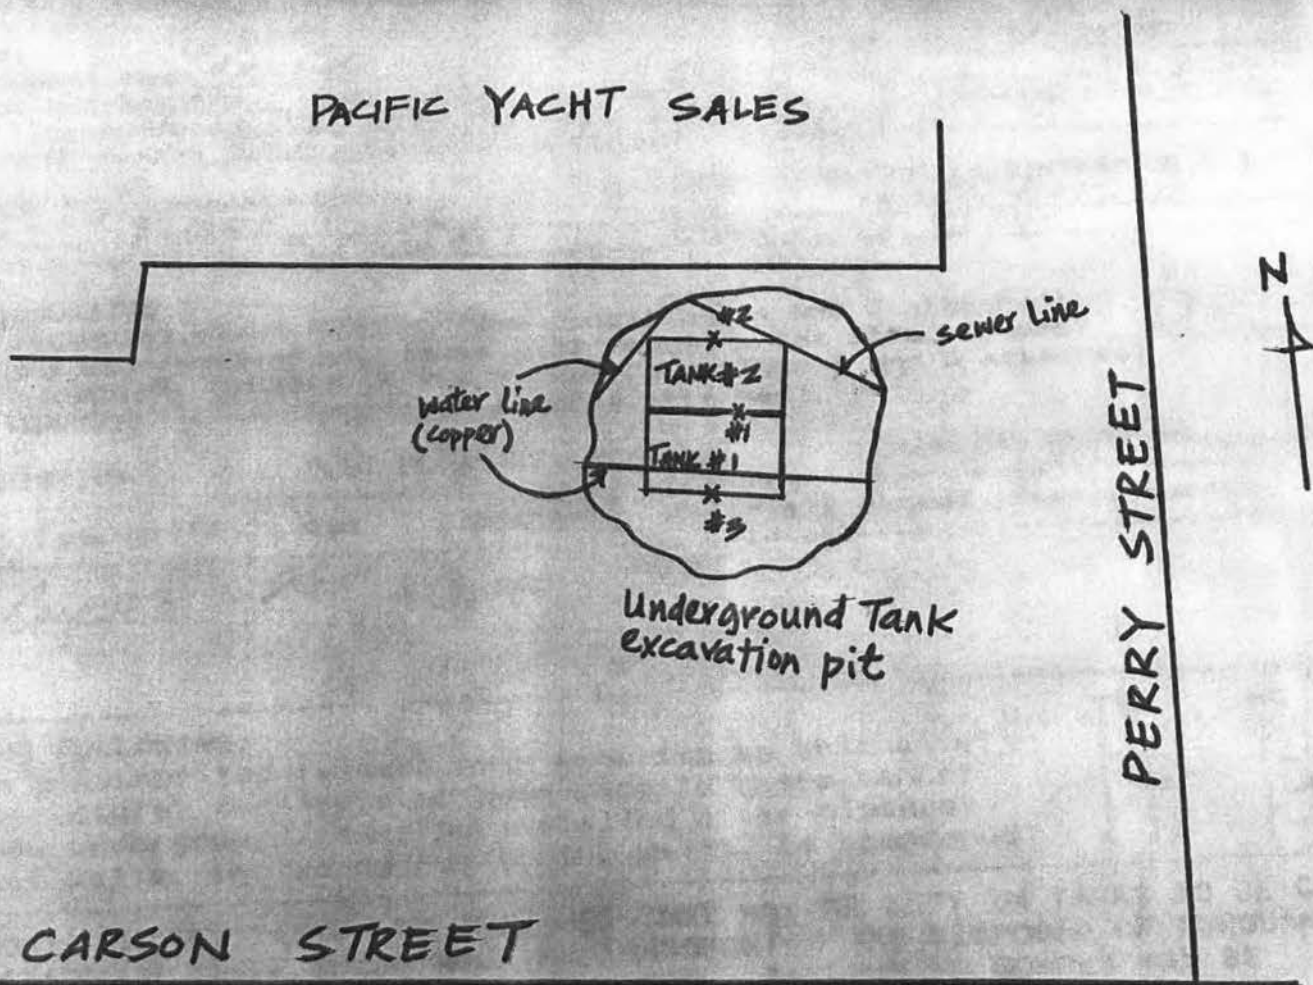 PACIFIC YACHT SALES
#2
sewer line
N
TANK #2
water line
(copper)
#1
TANK #1
#3
Underground Tank
excavation pit
PERRY STREET
CARSON STREET